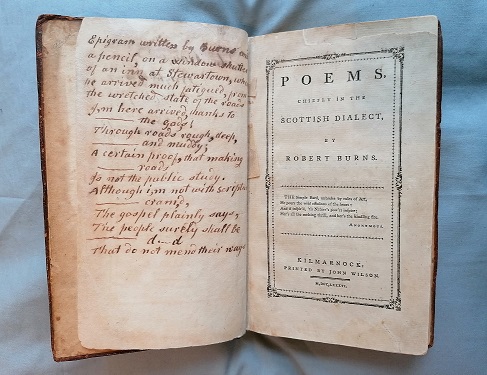 Epigram written by Burns on
a pencil, on a window shutter
of an inn at Stewartown, when
he arrived much fatigued, from
the wretched state of the roads
I,m here arrived, thanks to
the gods!
Through roads rough, deep,
and muddy;
A certain proof, that making
roads
Is not the public study.
Although i,m not with scripture
cramd,
The gospel plainly says,
The people surely shall be
d--d
That do not mend their ways
POEMS,
CHIEFLY IN THE
SCOTTISH DIALECT,
BY
ROBERT BURNS.
THE Simple Bard, unbroke by rules of Art,
He pours the wild effusions of the heart:
And if inspir'd, 'tis Nature's pow'rs inspire;
Her's all the melting thrill, and her's the kindling fire.
ANONYMOUS.
KILMARNOCK:
PRINTED BY JOHN WILSON.
M,DCC,LXXXVI.